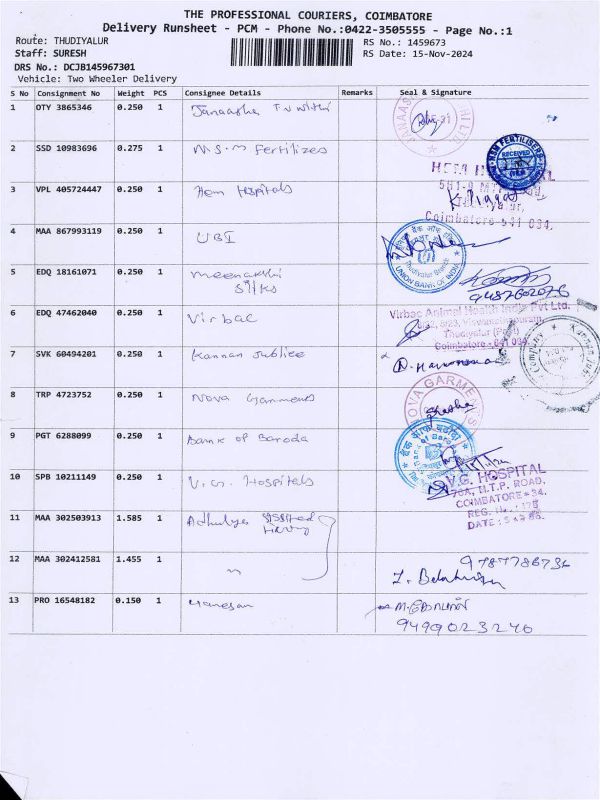 THE PROFESSIONAL COURIERS, COIMBATORE
Delivery Runsheet - PCM - Phone No.:0422-3505555 - Page No.:1
Route: THUDIYALUR
RS No.: 1459673
Staff: SURESH
RS Date: 15-Nov-2024
DRS No.: DCJB145967301
Vehicle: Two Wheeler Delivery
S No Consignment No Weight PCS Consignee Details Remarks Seal & Signature
1 OTY 3865346 0.250 1
2 SSD 10983696 0.275 1 M.S.M Fertilizes
RECEIVED
3 VPL 405724447 0.250 1 Hem Hospitals
HOSPITAL
Coimbatore-641 034.
4 MAA 867993119 0.250 1 UBI
Thudiyalur Branch
UNION BANK OF INDIA
5 EDQ 18161071 0.250 1 Meenakshi
Silks
9487602076
6 EDQ 47462040 0.250 1 Virbac
Virbac Animal Health India Pvt Ltd.
Thudiyalur (Post)
Coimbatore - 641 034
7 SVK 60494201 0.250 1 Kannan Jubliee
Company
Kannan
8 TRP 4723752 0.250 1 Nova Garments
NOVA GARMENTS
9 PGT 6288099 0.250 1 Bank of Baroda
10 SPB 10211149 0.250 1 V.G. Hospitals
V.G. HOSPITAL
70A, M.T.P. ROAD,
COIMBATORE-34.
REG. No.: 175
11 MAA 302503913 1.585 1
12 MAA 302412581 1.455 1 "
9787786736
13 PRO 16548182 0.150 1
9499023246